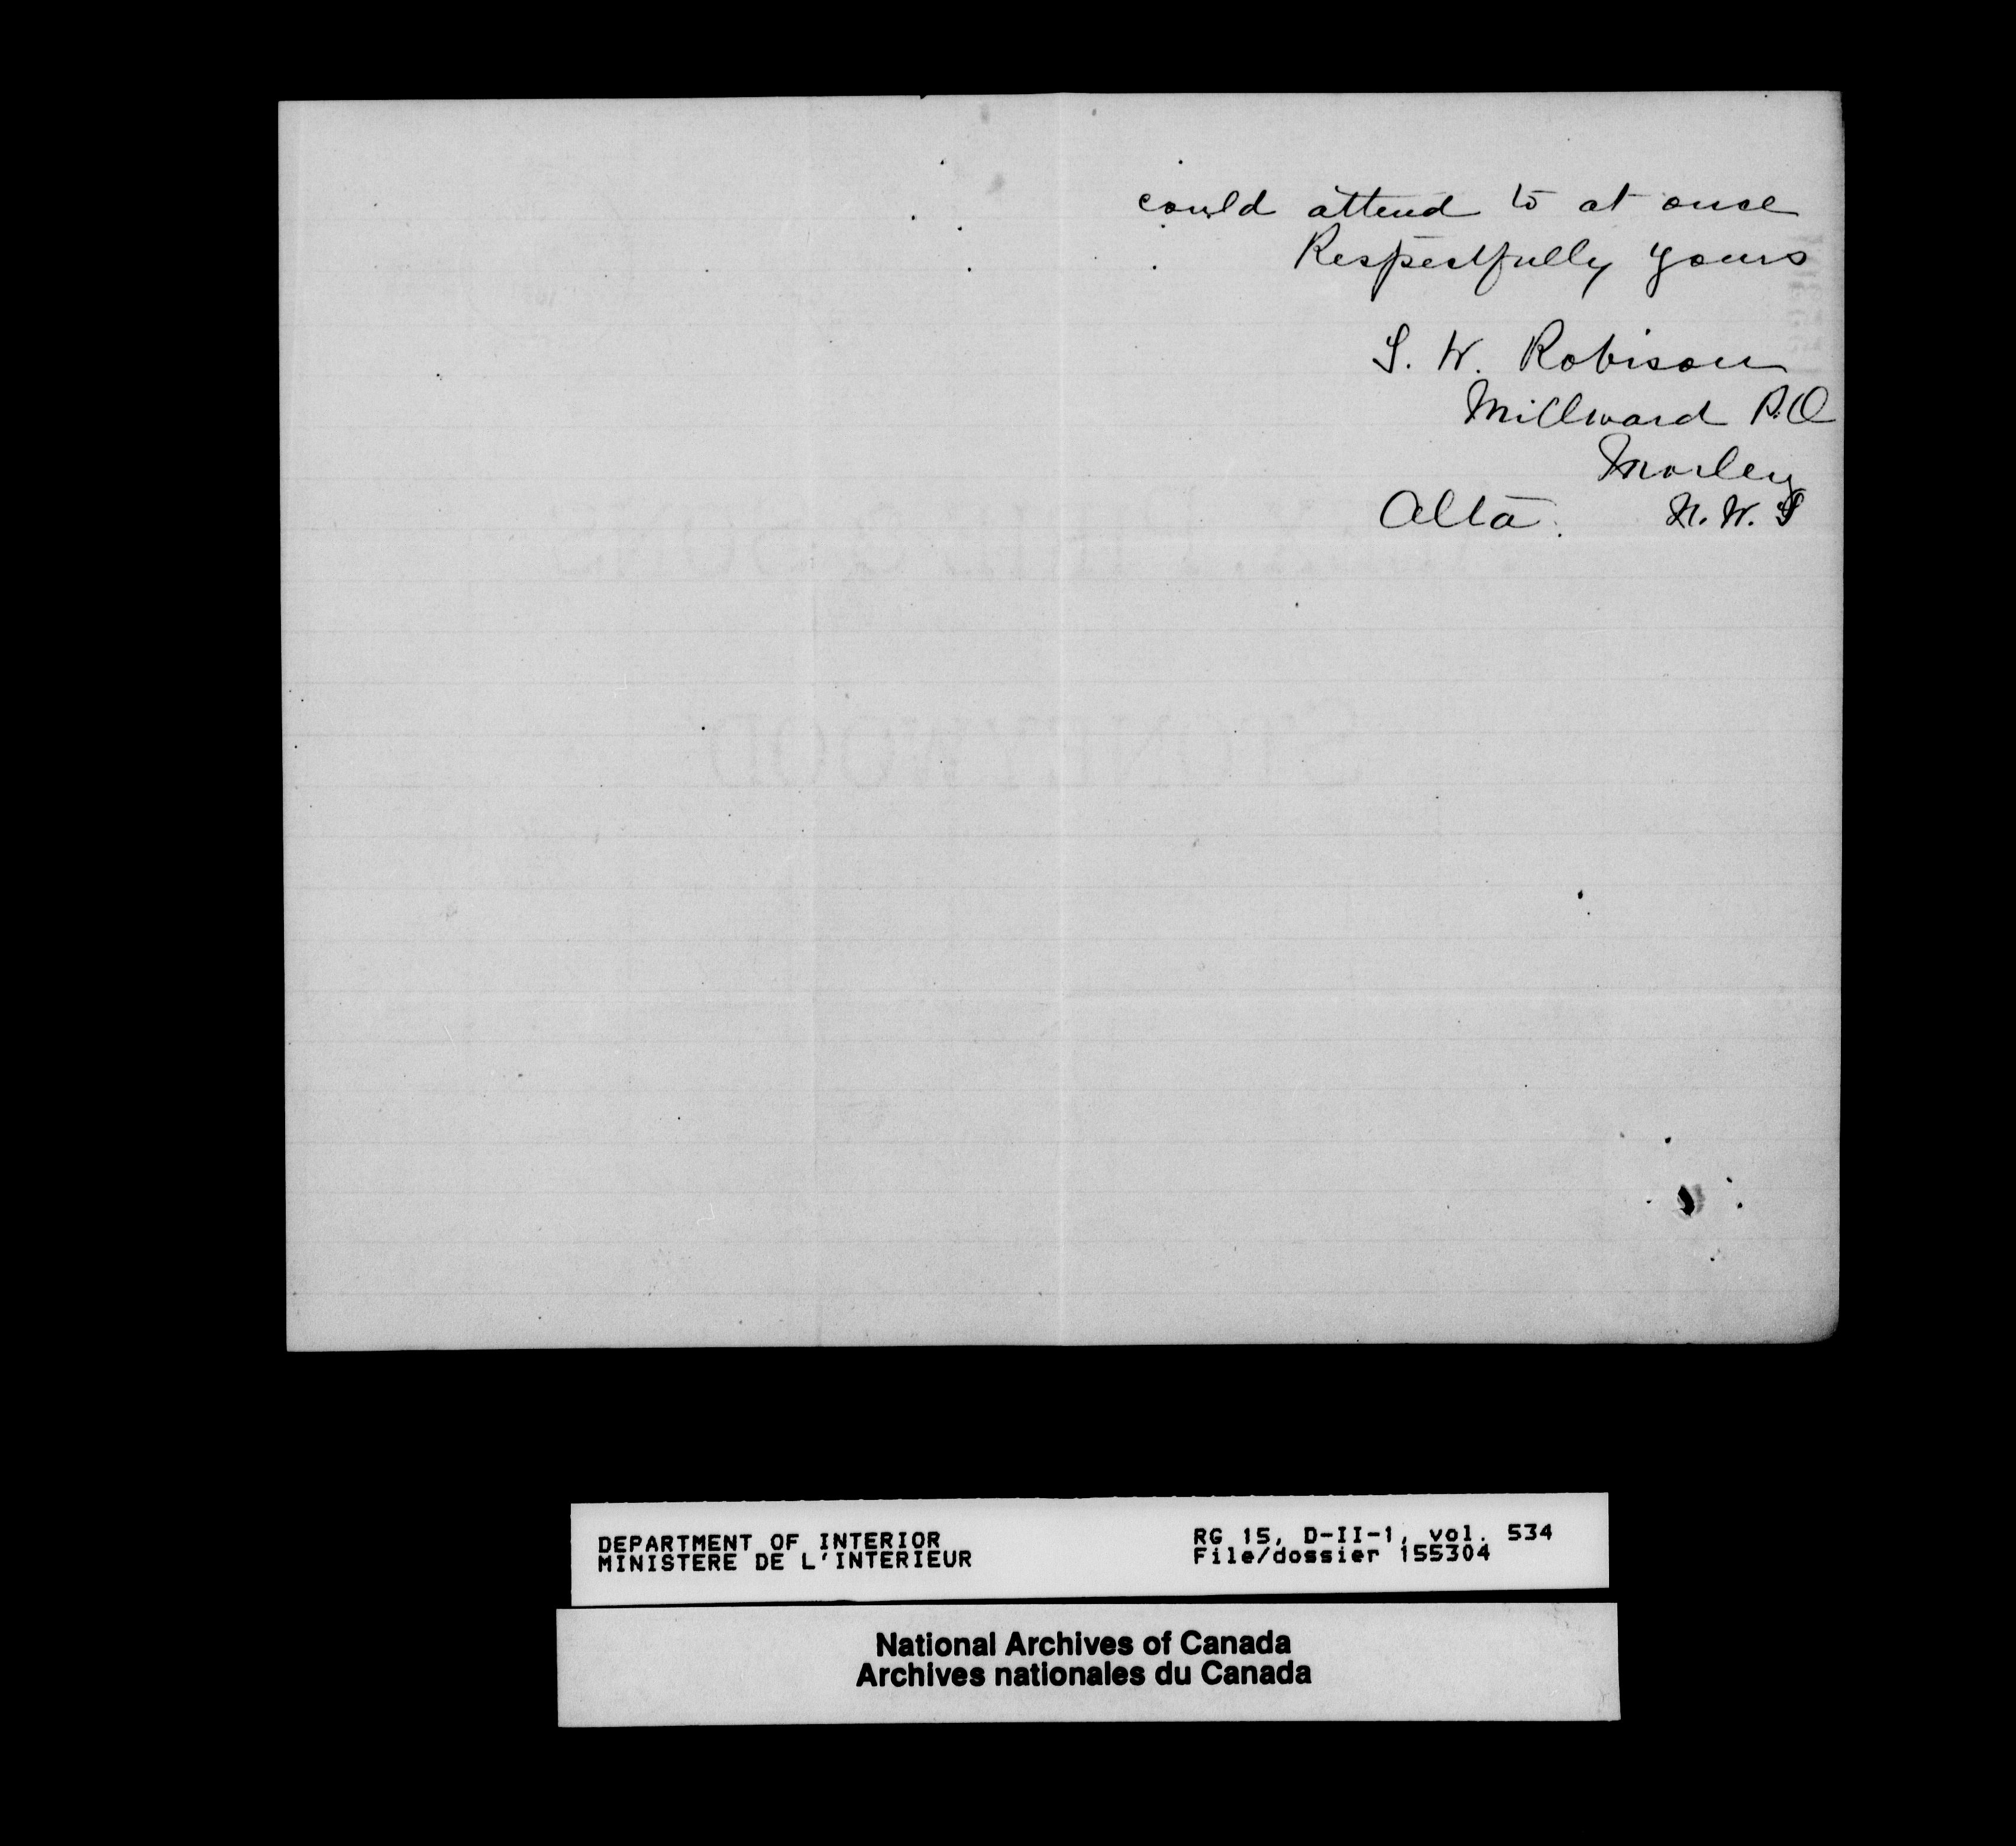 could attend to at once
Respectfully yours
S. W. Robison
Millward P.O
Morley
Alta. N. W. T
DEPARTMENT OF INTERIOR
MINISTERE DE L'INTERIEUR
RG 15, D-II-1, vol. 534
File/dossier 155304
National Archives of Canada
Archives nationales du Canada
STONEYWOOD